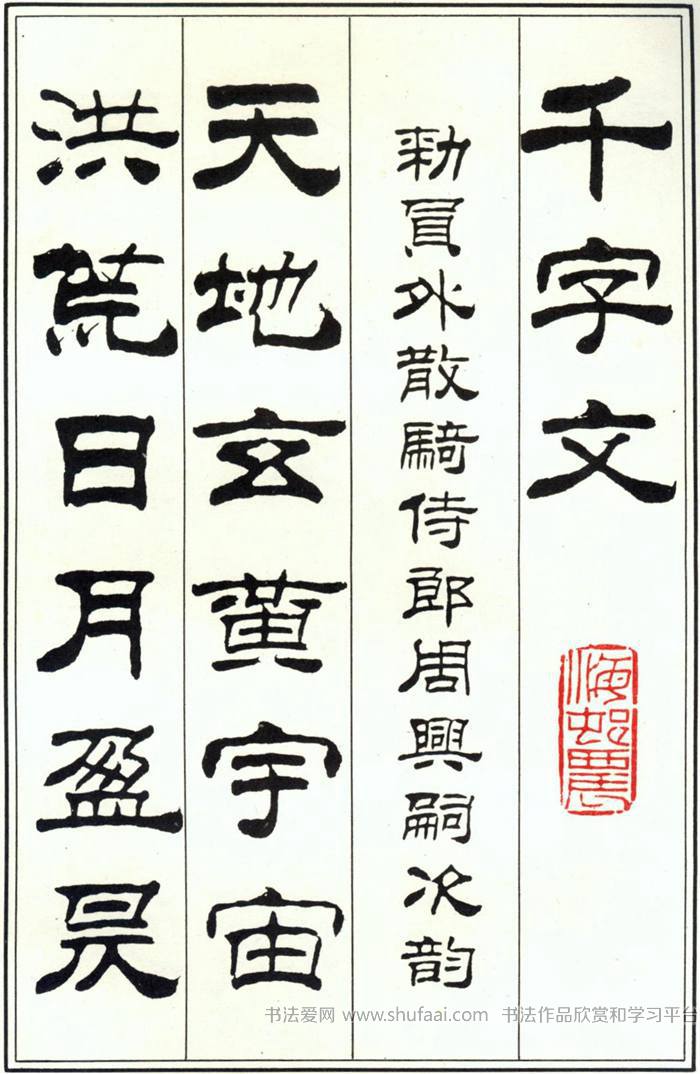 千字文
勑員外散騎侍郎周興嗣次韵
天地玄黃宇宙
洪荒日月盈昃
书法爱网 www.shufaai.com 书法作品欣赏和学习平台